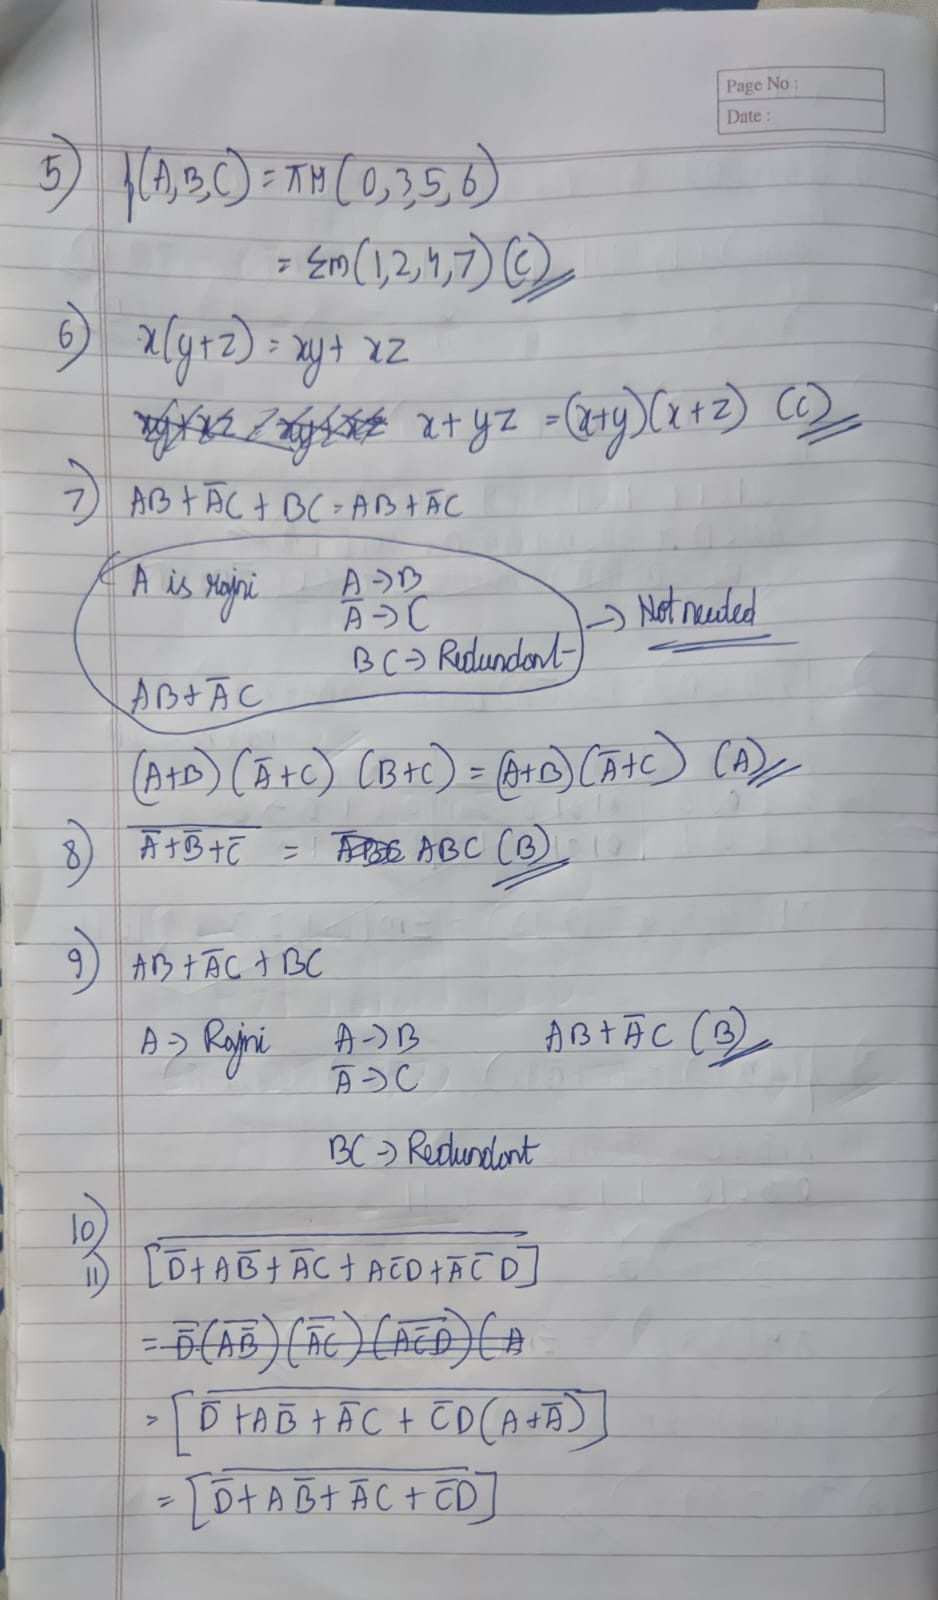 Page No :
Date :
5) f(A,B,C) = πM(0,3,5,6)
= Σm(1,2,4,7) (C)
6) x(y+z) = xy + xz
x + yz = (x+y)(x+z) (C)
7) AB + A̅C + BC = AB + A̅C
A is rajni A → B
A̅ → C
→ Not needed
BC → Redundant
AB + A̅C
(A+B) (A̅+C) (B+C) = (A+B)(A̅+C) (A)
8) \overline{A̅+B̅+C̅} = ABC (B)
9) AB + A̅C + BC
A → Rajni A → B AB + A̅C (B)
A̅ → C
BC → Redundant
10)
11) [\overline{D̅ + AB̅ + A̅C + AC̅D + A̅C̅D}]
= D̿(\overline{AB̅})(\overline{A̅C})(\overline{AC̅D})(A
= [\overline{D̅ + AB̅ + A̅C + C̅D(A+A̅)}]
= [\overline{D̅ + AB̅ + A̅C + C̅D}]